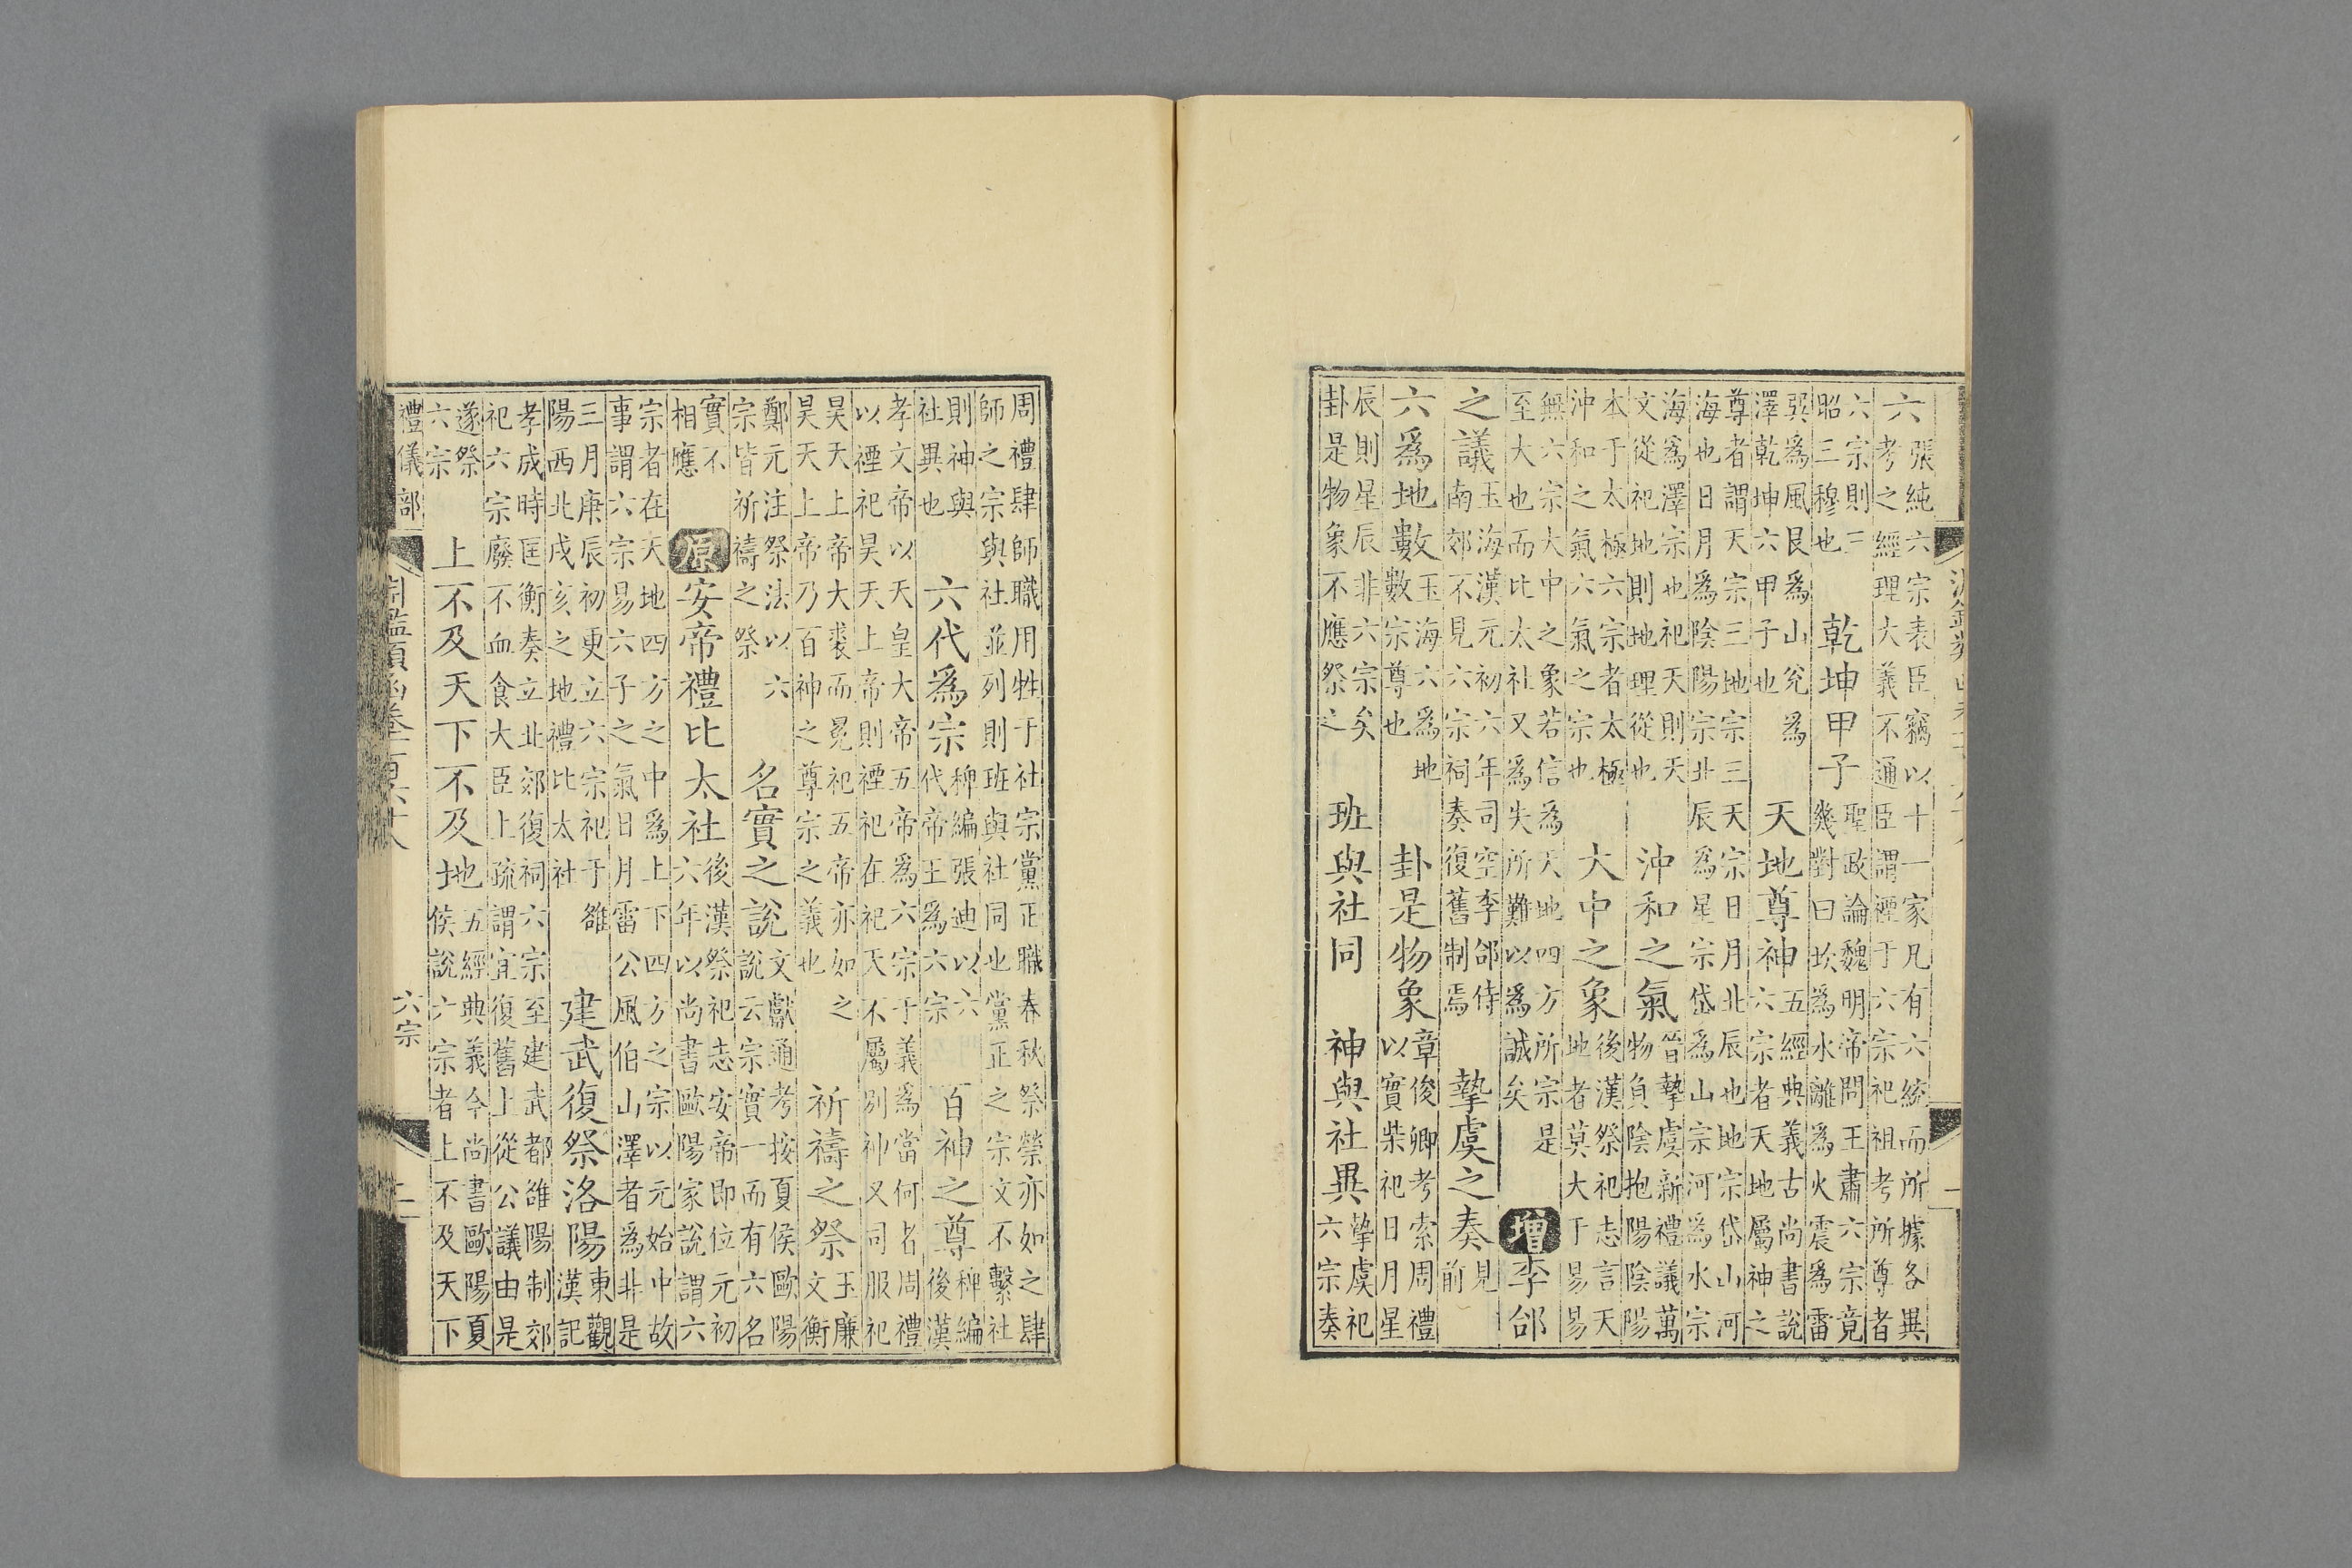 六
張純六宗表臣竊以十一家凡有六統而所據各異
考之經理大義不通臣謂禋于六宗祀祖考所尊者
六宗則三
昭三穆也
乾坤甲子
聖政論魏明帝問王肅六宗竟
幾對曰坎為水離為火震為雷
巽爲風艮爲山兌爲
澤乾坤六甲子也
天地尊神
五經典義古尚書說
六宗者天地屬神之
尊者謂天宗三地宗三天宗日月北辰也地宗岱山河
海也日月爲陰陽宗北辰爲星宗岱爲山宗河爲水宗
海爲澤宗也祀天則天
文從祀地則地理從也
沖和之氣
晉摯虞新禮議萬
物負陰抱陽陰陽
本于太極六宗者太極
沖和之氣六氣之宗也
大中之象
後漢祭祀志言天
地者莫大于易易
無六宗大中之象若信為天地四方所宗是
至大也而比太社又為失所難以為誠矣
增 李郃
之議
玉海漢元初六年司空李郃侍
南郊不見六宗祠奏復舊制焉
摯虞之奏
見
前
六爲地數
玉海六爲地
數宗尊也
卦是物象
章俊卿考索周禮
以實柴祀日月星
辰則星辰非六宗矣
卦是物象不應祭之
班與社同
神與社異
摯虞祀
六宗奏
周禮肆師職用牲于社宗黨正職春秋祭禜亦如之肆
師之宗與社並列則班與社同也黨正之宗文不繫社
則神與
社異也
六代爲宗
稗編張迪以六
代帝王爲六宗
百神之尊
稗編
後漢
孝文帝以天皇大帝五帝爲六宗于義爲當何者周禮
以禋祀昊天上帝則禋祀在祀天不屬別神又司服祀
昊天上帝大裘而冕祀五帝亦如之
昊天上帝乃百神之尊宗之義也
祈禱之祭
玉廉
文衡
鄭元注祭法以六
宗皆祈禱之祭
名實之說
文獻通考按夏侯歐陽
說云宗實一而有六名
實不
相應
原 安帝禮比太社
後漢祭祀志安帝即位元初
六年以尚書歐陽家說謂六
宗者在天地四方之中爲上下四方之宗以元始中故
事謂六宗易六子之氣日月雷公風伯山澤者爲非是
三月庚辰初更立六宗祀于雒
陽西北戌亥之地禮比太社
建武復祭洛陽
東觀
漢記
孝成時匡衡奏立北郊復祠六宗至建武都雒陽制郊
祀六宗廢不血食大臣上疏謂宜復舊上從公議由是
遂祭
六宗
上不及天下不及地
五經典義今尚書歐陽夏
侯說六宗者上不及天下
禮儀部
六宗